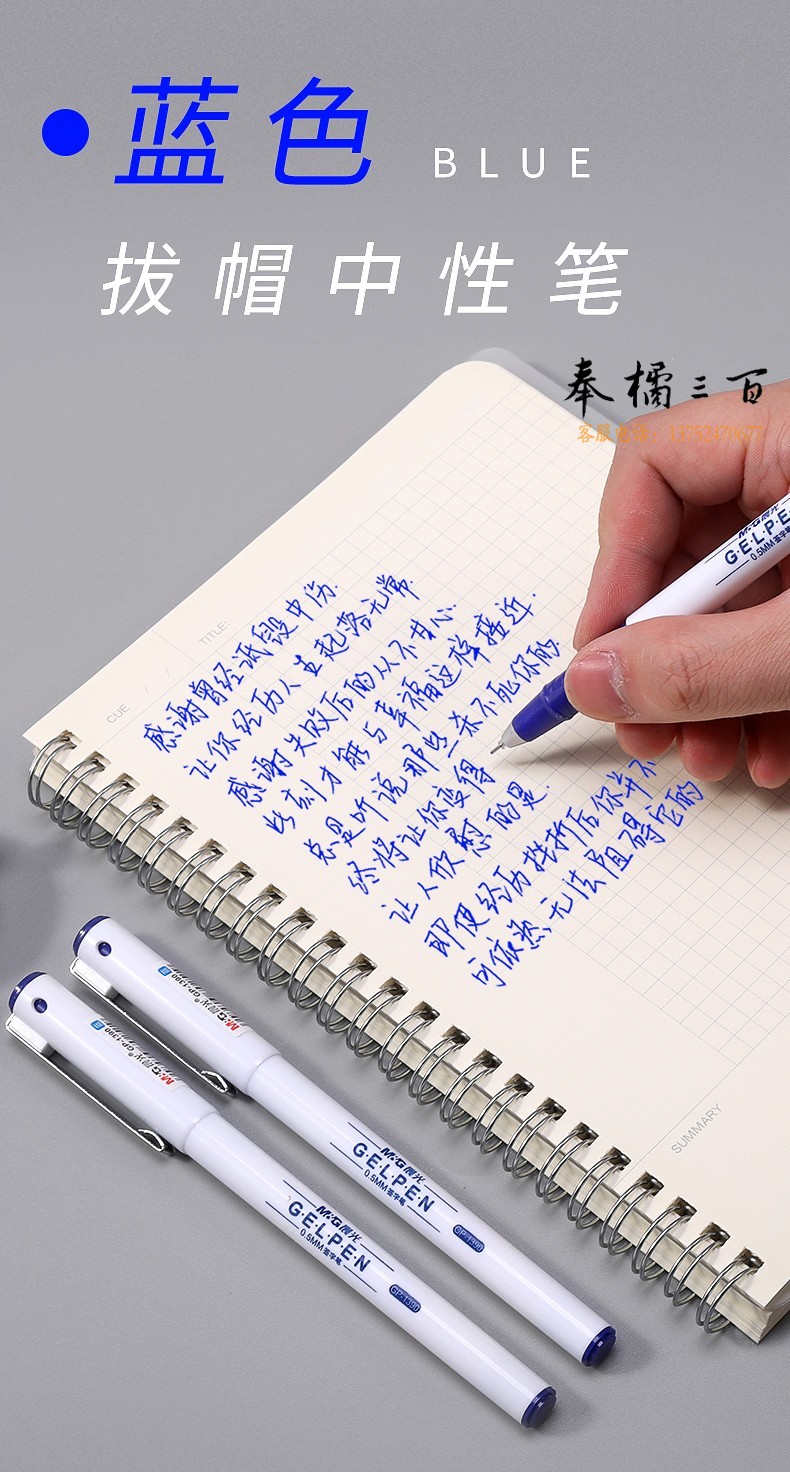 蓝色 BLUE
拔帽中性笔
奉橘三百
客服电话:
M&G晨光
G·E·L·P·E
0.5MM 签字笔
TITLE:
CUE / /
感谢曾经诋毁中伤.
让你经历人生起落无常
感谢失败后的从不甘心.
此刻才能与幸福这样接近.
总是听说那些杀不死你的
终将让你变得
让人欣慰的是.
即使经历挫折后你并不
可依然无法阻碍它的
SUMMARY
M&G晨光 GP-1390
M&G晨光
G·E·L·P·E·N
0.5MM 签字笔
GP-1390
M&G晨光 GP-1390
M&G晨光
G·E·L·P·E·N
0.5MM 签字笔
GP-1390